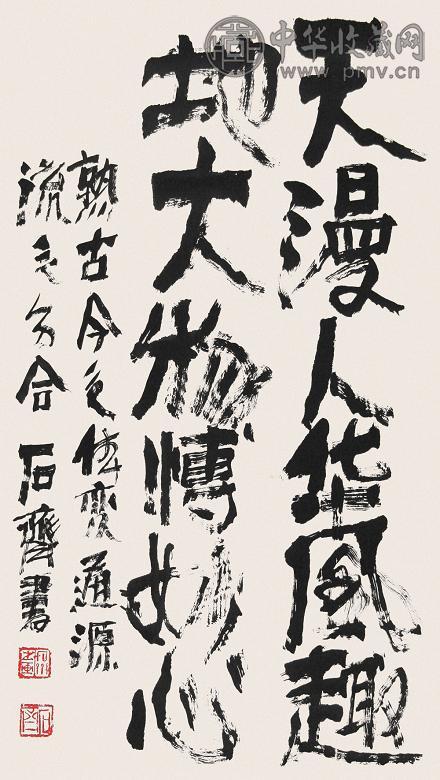 中华收藏网
www.pmv.cn
天漫人华风趣
地大物博妙心
熟古今之体变通源
流之分合石齐书